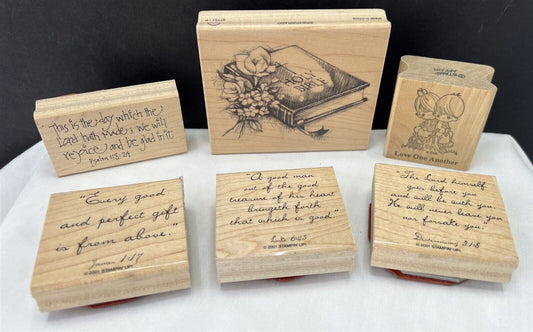 This is the day which the
Lord hath made; we will
rejoice and be glad in it
Psalm 118:24
HOLY
BIBLE
Love One Another
"Every good
and perfect gift
is from above."
James 1:17
© 2001 STAMPIN' UP!
"A good man
out of the good
treasure of his heart
bringeth forth
that which is good."
Luke 6:45
© 2001 STAMPIN' UP!
"The Lord himself
goes before you
and will be with you.
He will never leave you
nor forsake you.
Deuteronomy 31:8
© 2001 STAMPIN' UP!